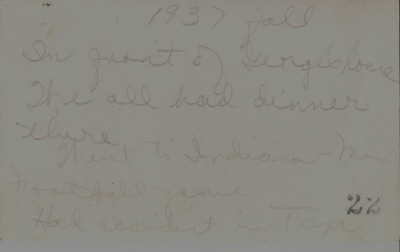 1937 fall
In front of George's house
We all had dinner
there
Went to Indiana - Minn
Football game
Had accident in Taxi
22